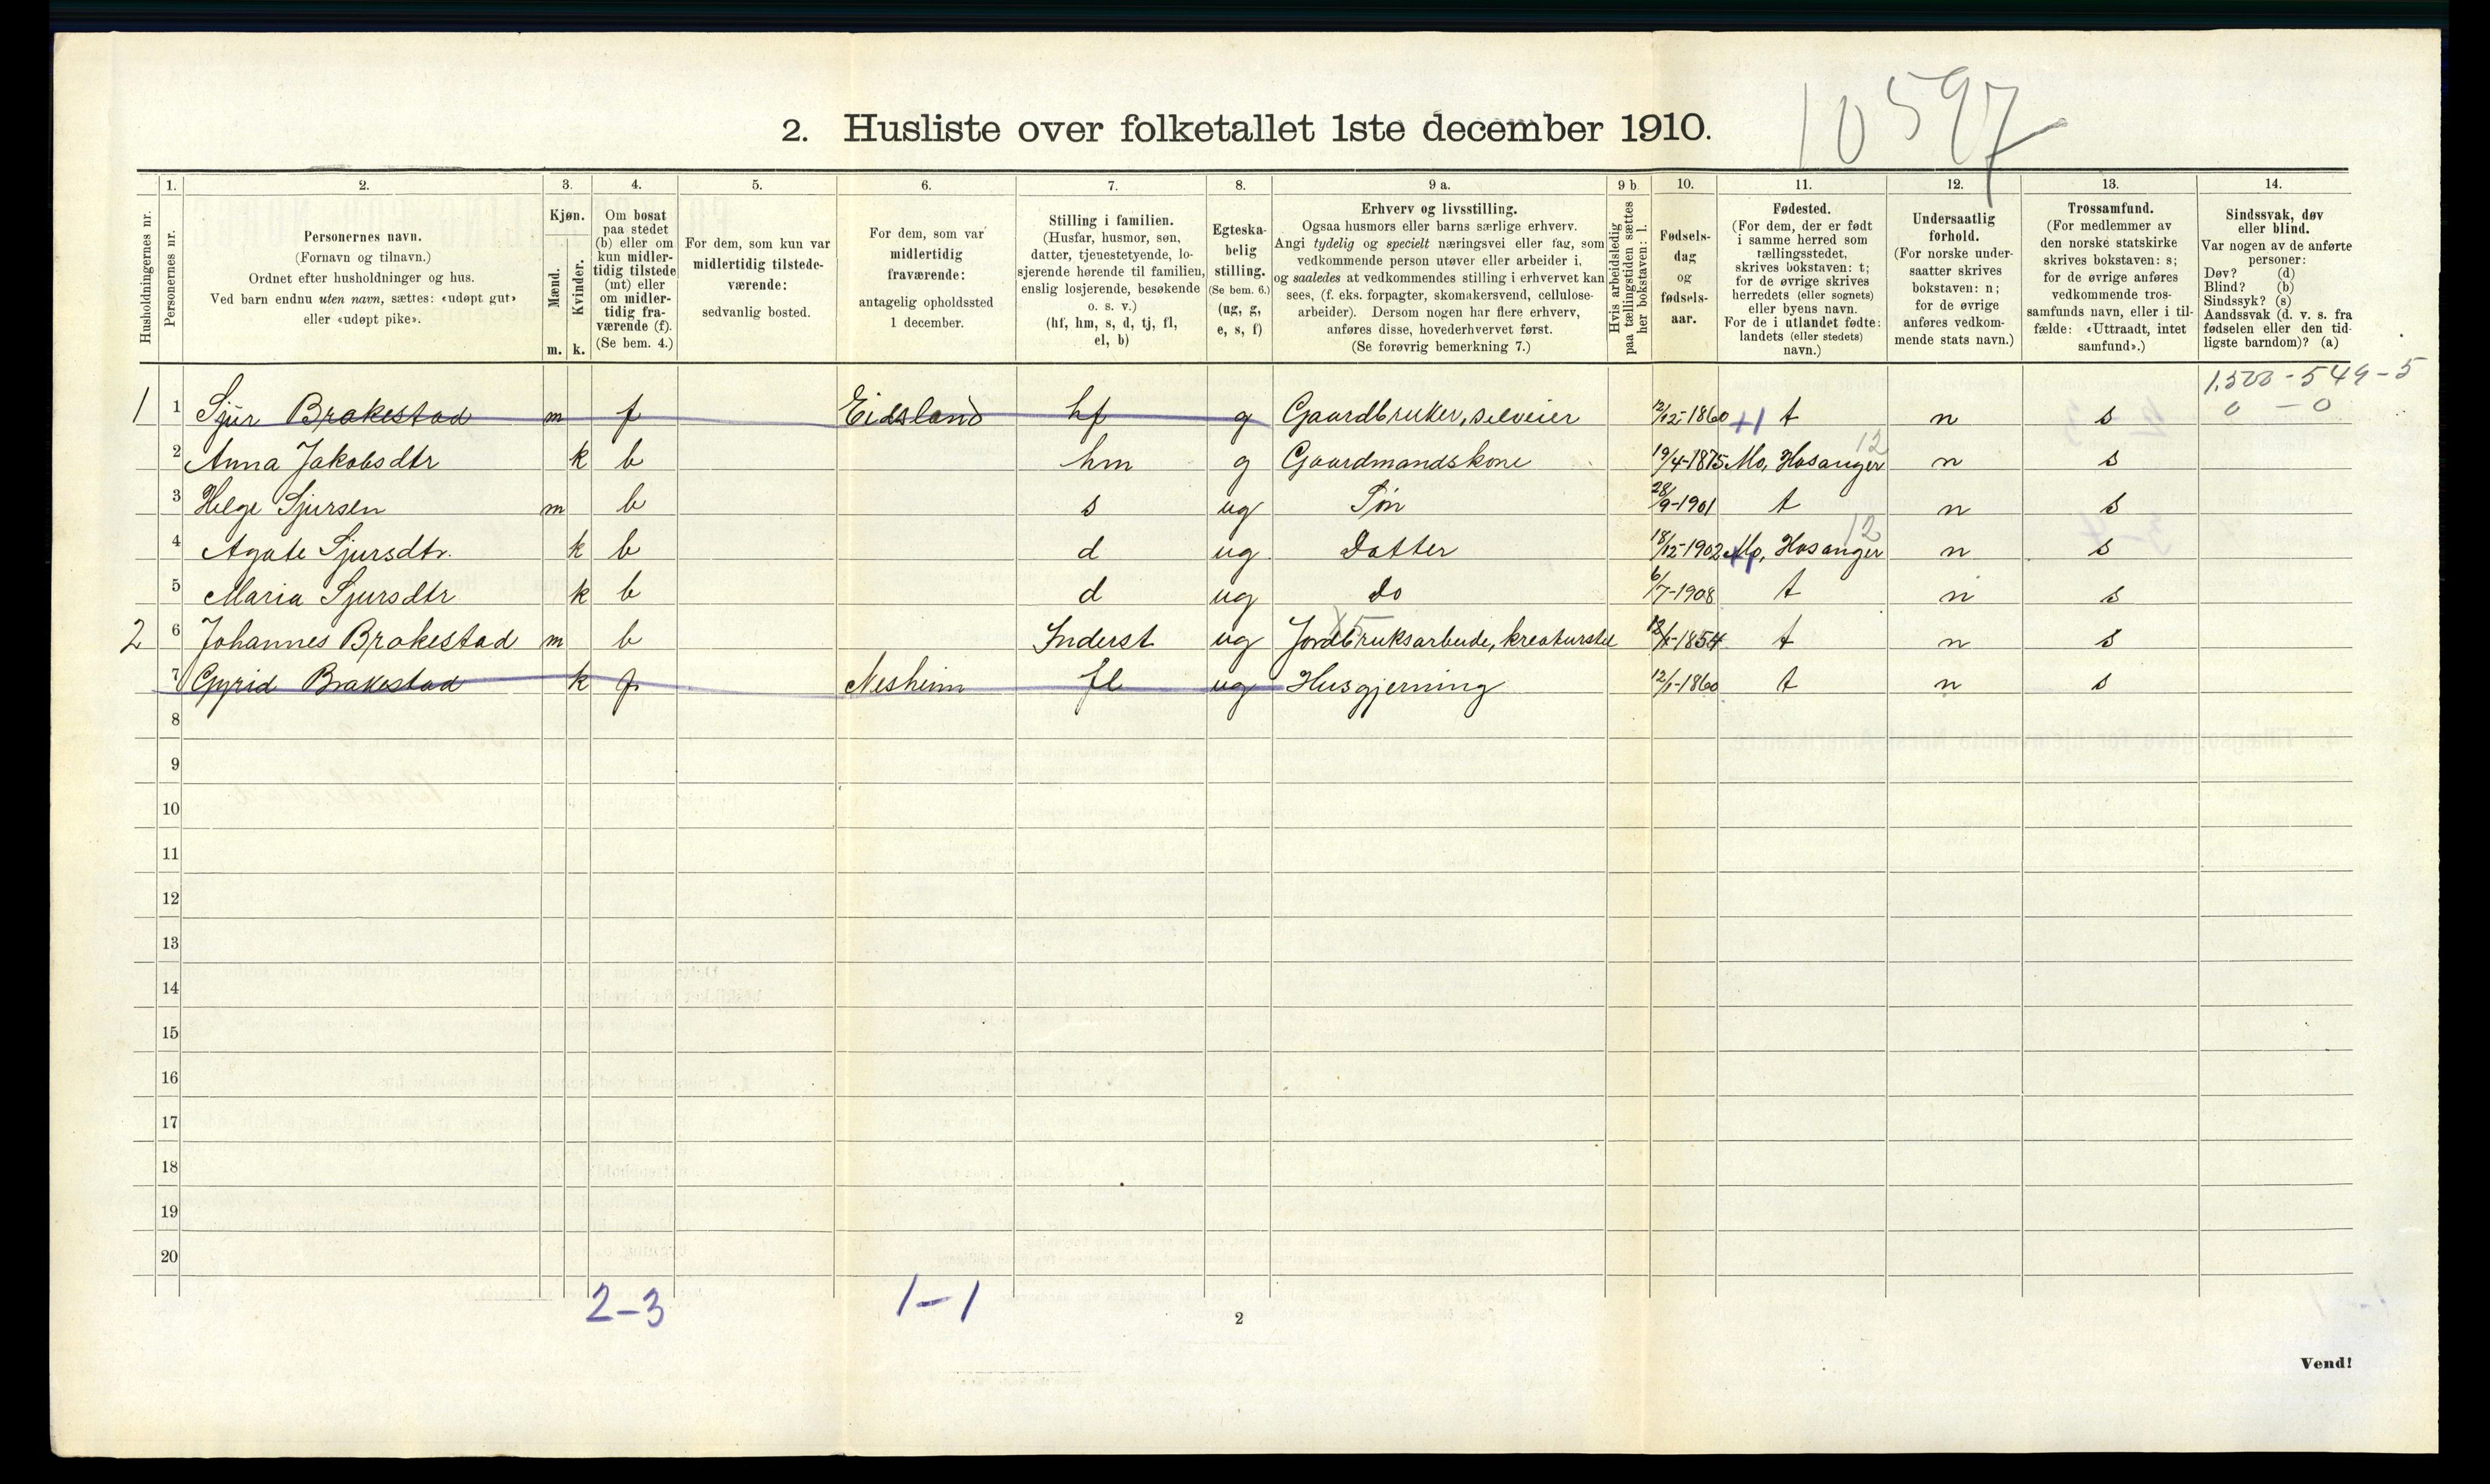 10597
2. Husliste over folketallet 1ste december 1910.
1. 2. 3. 4. 5. 6. 7. 8. 9 a. 9 b. 10. 11. 12. 13. 14.
Husholdningernes nr.
Personernes nr.
Personernes navn.
(Fornavn og tilnavn.)
Ordnet efter husholdninger og hus.
Ved barn endnu uten navn, sættes: «udøpt gut»
eller «udøpt pike».
Kjøn.
Mænd.
Kvinder.
m. k.
Om bosat
paa stedet
(b) eller om
kun midler-
tidig tilstede
(mt) eller
om midler-
tidig fra-
værende (f).
(Se bem. 4.)
For dem, som kun var
midlertidig tilstede-
værende:
sedvanlig bosted.
For dem, som var
midlertidig
fraværende:
antagelig opholdssted
1 december.
Stilling i familien.
(Husfar, husmor, søn,
datter, tjenestetyende, lo-
sjerende hørende til familien,
enslig losjerende, besøkende
o. s. v.)
(hf, hm, s, d, tj, fl,
el, b)
Egteska-
belig
stilling.
(Se bem. 6.)
(ug, g,
e, s, f)
Erhverv og livsstilling.
Ogsaa husmors eller barns særlige erhverv.
Angi tydelig og specielt næringsvei eller fag, som
vedkommende person utøver eller arbeider i,
og saaledes at vedkommendes stilling i erhvervet kan
sees, (f. eks. forpagter, skomakersvend, cellulose-
arbeider). Dersom nogen har flere erhverv,
anføres disse, hovederhvervet først.
(Se forøvrig bemerkning 7.)
Hvis arbeidsledig
paa tællingstiden sættes
her bokstaven: l.
Fødsels-
dag
og
fødsels-
aar.
Fødested.
(For dem, der er født
i samme herred som
tællingsstedet,
skrives bokstaven: t;
for de øvrige skrives
herredets (eller sognets)
eller byens navn.
For de i utlandet fødte:
landets (eller stedets)
navn.)
Undersaatlig
forhold.
(For norske under-
saatter skrives
bokstaven: n;
for de øvrige
anføres vedkom-
mende stats navn.)
Trossamfund.
(For medlemmer av
den norske statskirke
skrives bokstaven: s;
for de øvrige anføres
vedkommende tros-
samfunds navn, eller i til-
fælde: «Uttraadt, intet
samfund».)
Sindssvak, døv
eller blind.
Var nogen av de anførte
personer:
Døv? (d)
Blind? (b)
Sindssyk? (s)
Aandssvak (d. v. s. fra
fødselen eller den tid-
ligste barndom)? (a)
1.500 - 549 - 5
0 - 0
1 1 Sjur Brakestad m f Eidsland hf g Gaardbruker, selveier 12/12-1860 +1 t n s
2 Anna Jakobsdtr k b hm g Gaardmandskone 19/4-1875 Mo, Hosanger 12 n s
3 Helge Sjursen m b s ug Søn 28/9-1901 t n s
4 Agate Sjursdtr. k b d ug Datter 18/12-1902 Mo, Hosanger 12 n s
5 Maria Sjursdtr k b d ug Do 6/7-1908 t n s
2 6 Johannes Brakestad m b Inderst ug Jordbruksarbeide, kreaturstel 1854 t n s
7 Gyrid Brakestad k f Nesheim fl ug Husgjerning 12/1-1860 t n s
8
9
10
11
12
13
14
15
16
17
18
19
20
2-3 1-1
2
Vend!